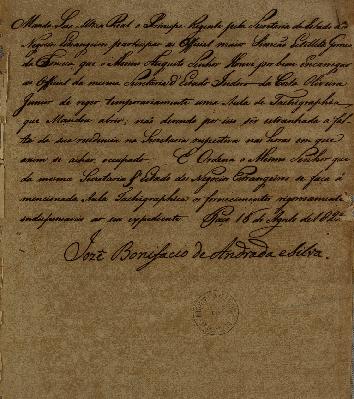 Manda Sua Alteza Real o Principe Regente pela Secretaria de Estado dos
Negocios Estrangeiros participar ao Official maior Simeão Estellita Gomes
da Fonseca que o Mesmo Augusto Senhor Houve por bem encarregar
ao Official da mesma Secretaria d'Estado Isidoro da Costa Oliveira
Junior de reger temporariamente uma Aula de Tachigraphia,
que Mandou abrir; não devendo por isso ser estranhada a fal-
ta de sua residencia na Secretaria respectiva nas horas em que
assim se achar occupado. E Ordena o Mesmo Senhor que
da mesma Secretaria d'Estado dos Negocios Estrangeiros se faça á
mencionada Aula Tachigraphica o fornecimento rigorosamente
indispensavel ao seu expediente. Paço 18 de Agosto de 1822
José Bonifacio de Andrada e Silva.